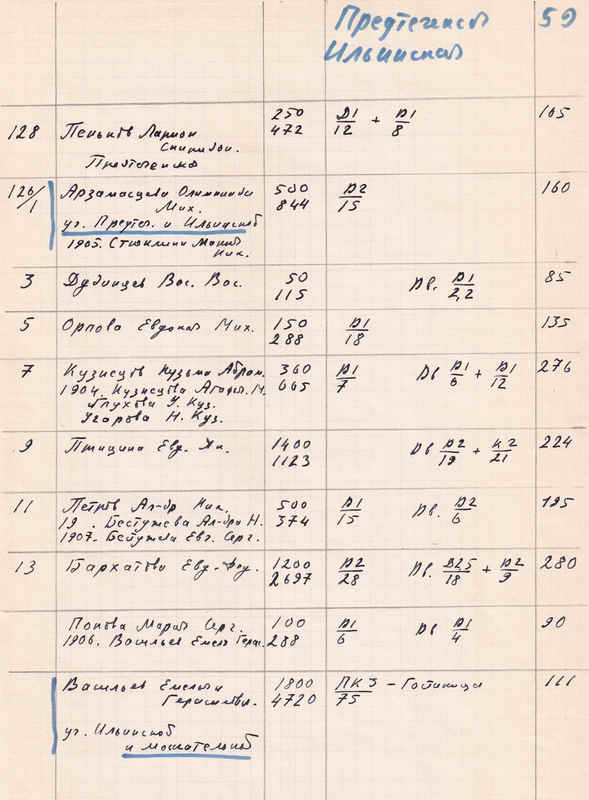 Предтеченская 59
Ильинская
128 Пеньков Ларион 250 Д1/12 + Д1/8 165
Спиридон. 472
Предтеченска
126/1 Арзамасцева Олимпиада 500 Д2/15 160
Мих. 844
уг. Предтеч. и Ильинской
1905. Мих.
3 Вас. Вас. 50 Дв. Д1/2,2 85
115
5 Орлова Евдокия Мих. 150 Д1/18 135
288
7 Кузнецов Кузьма Абрам. 360 Д1/7 Дв Д1/6 + Д1/12 276
1904. Кузнецова М. 665
Глухова У. Куз.
Угарова Н. Куз.
9 Птицина Евд. Як. 1400 Дв Д2/19 + К2/21 224
1123
11 Петров Ал-др Ник. 500 Д1/15 Дв. Д2/6 195
19 . Бестужева Ал-дра Н. 374
1907. Бестужева Евг. Серг.
13 Бархатова Евд. Фед. 1200 Д2/28 Дв. Д2,5/18 + Д2/9 280
2697
Попова Мария Серг. 100 Д1/6 Дв Д1/4 90
1906. Васильев Емел. Герас. 288
Васильев Емельян 1800 ПК3/75 – Гостиница 111
Герасимович. 4720
уг. Ильинской
иМожательной